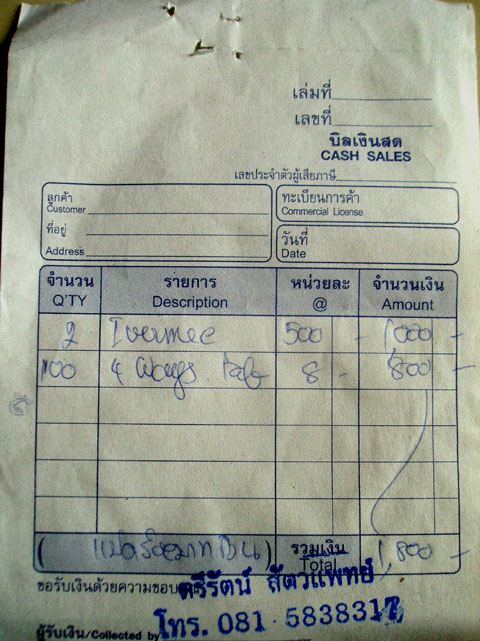 เล่มที่
เลขที่
บิลเงินสด
CASH SALES
เลขประจำตัวผู้เสียภาษี
ลูกค้า
Customer
ที่อยู่
Address
ทะเบียนการค้า
Commercial License
วันที่
Date
จำนวน รายการ หน่วยละ จำนวนเงิน
Q'TY Description @ Amount
2 Ivermec 500 - 1,000 -
100 4 Ways 8 - 800 -
(แปดร้อยบาทถ้วน) รวมเงิน 1,800 -
Total
ขอรับเงินด้วยความขอบ
ตรีรัตน์ สัตวแพทย์
ผู้รับเงิน/Collected by
โทร. 081-5838317